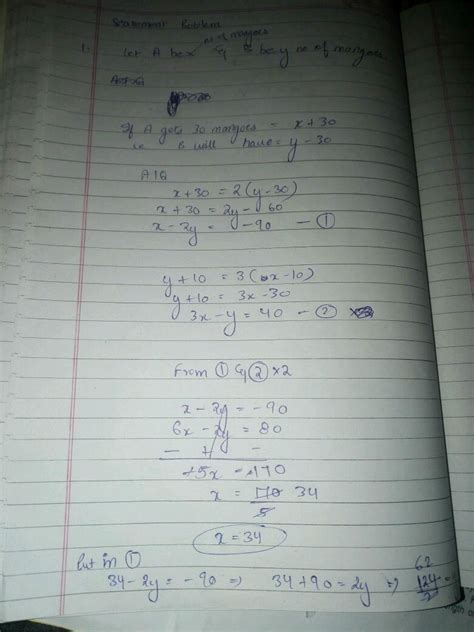 Statement Problem
no of mangoes
1. Let A be x & B be y no of mangoes
ATQ
If A gets 30 mangoes = x+30
ie B will have = y-30
ATQ
x+30 = 2(y-30)
x+30 = 2y-60
x-2y = -90 — ①
y+10 = 3(x-10)
y+10 = 3x-30
3x-y = 40 — ②
From ① & ② ×2
x-2y = -90
6x-2y = 80
- + -
+5x = +170
x = 170 34
5
x = 34
put in ①
62
34-2y = -90 => 34+90 = 2y => 124
2